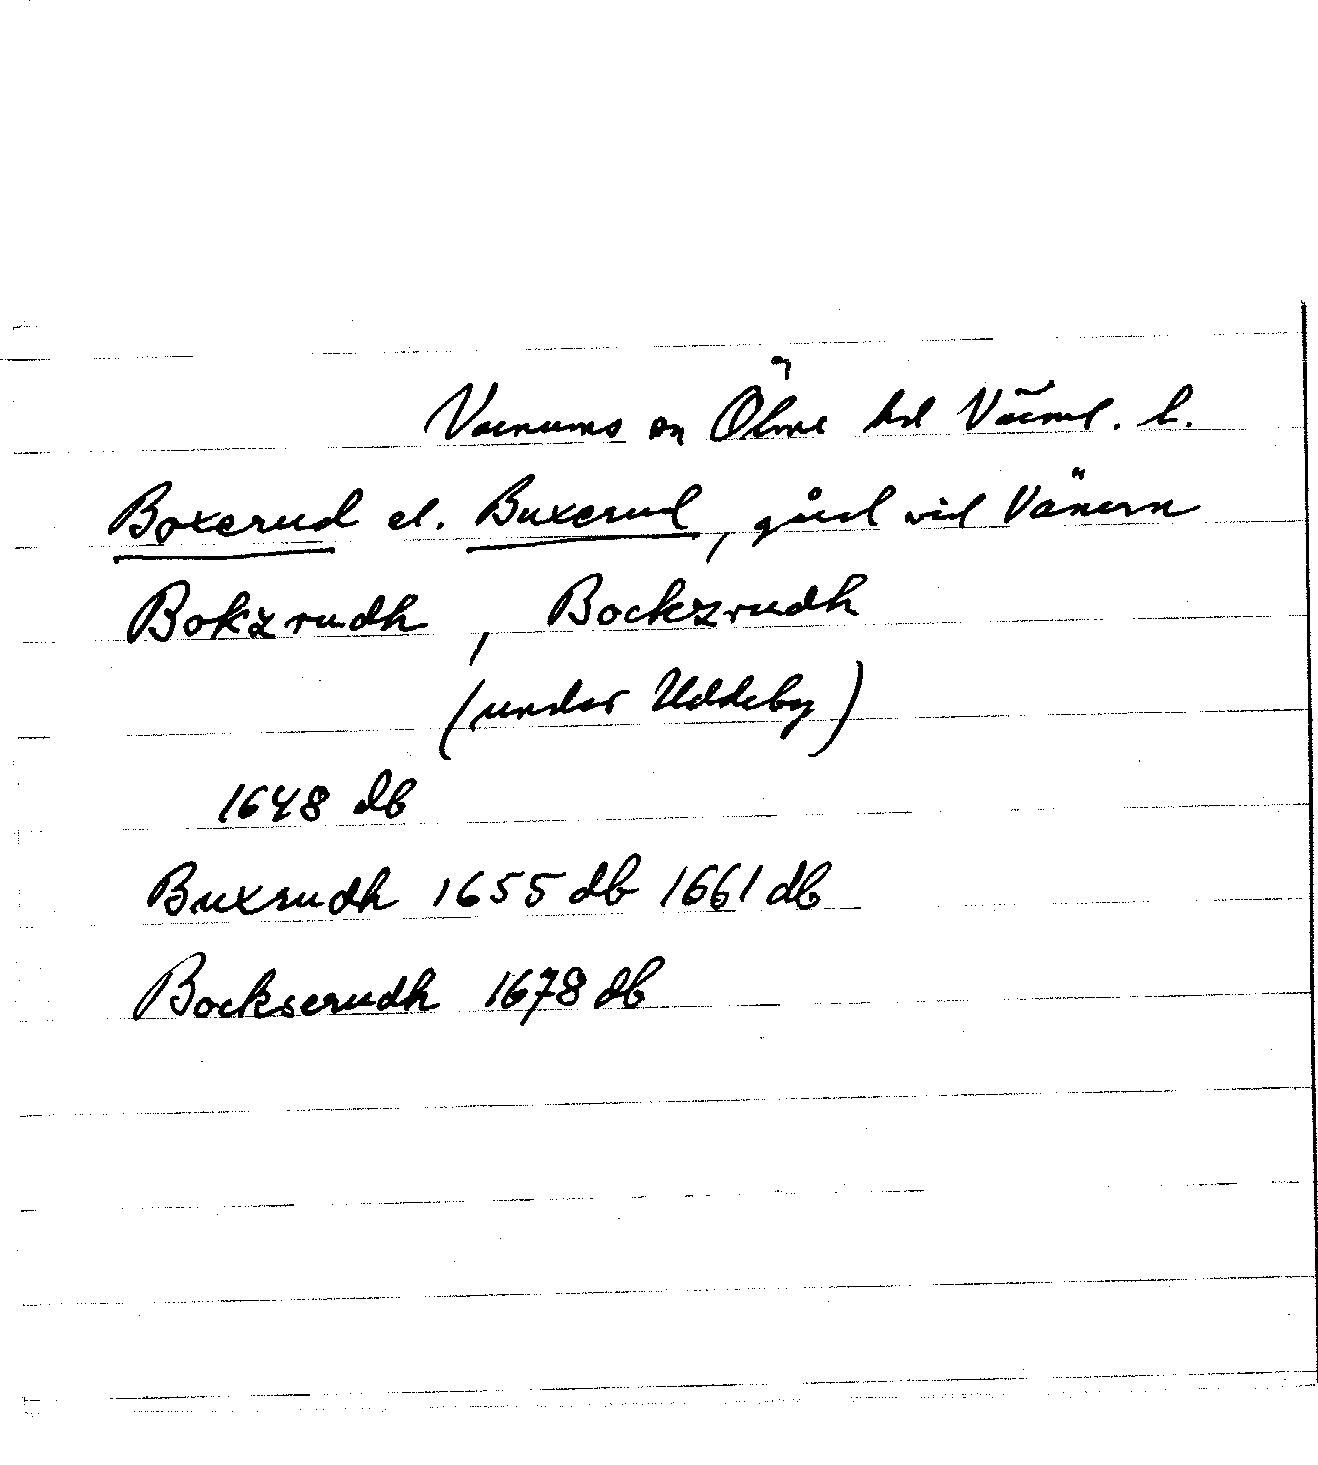 Varnums sn Ölme hd Värml. l.
Boxerud el. Buxerud, gård vid Vänern
Bokzrudh, Bockzrudh
(under Uddeby)
1648 db
Buxrudh 1655 db 1661 db
Bockserudh 1678 db